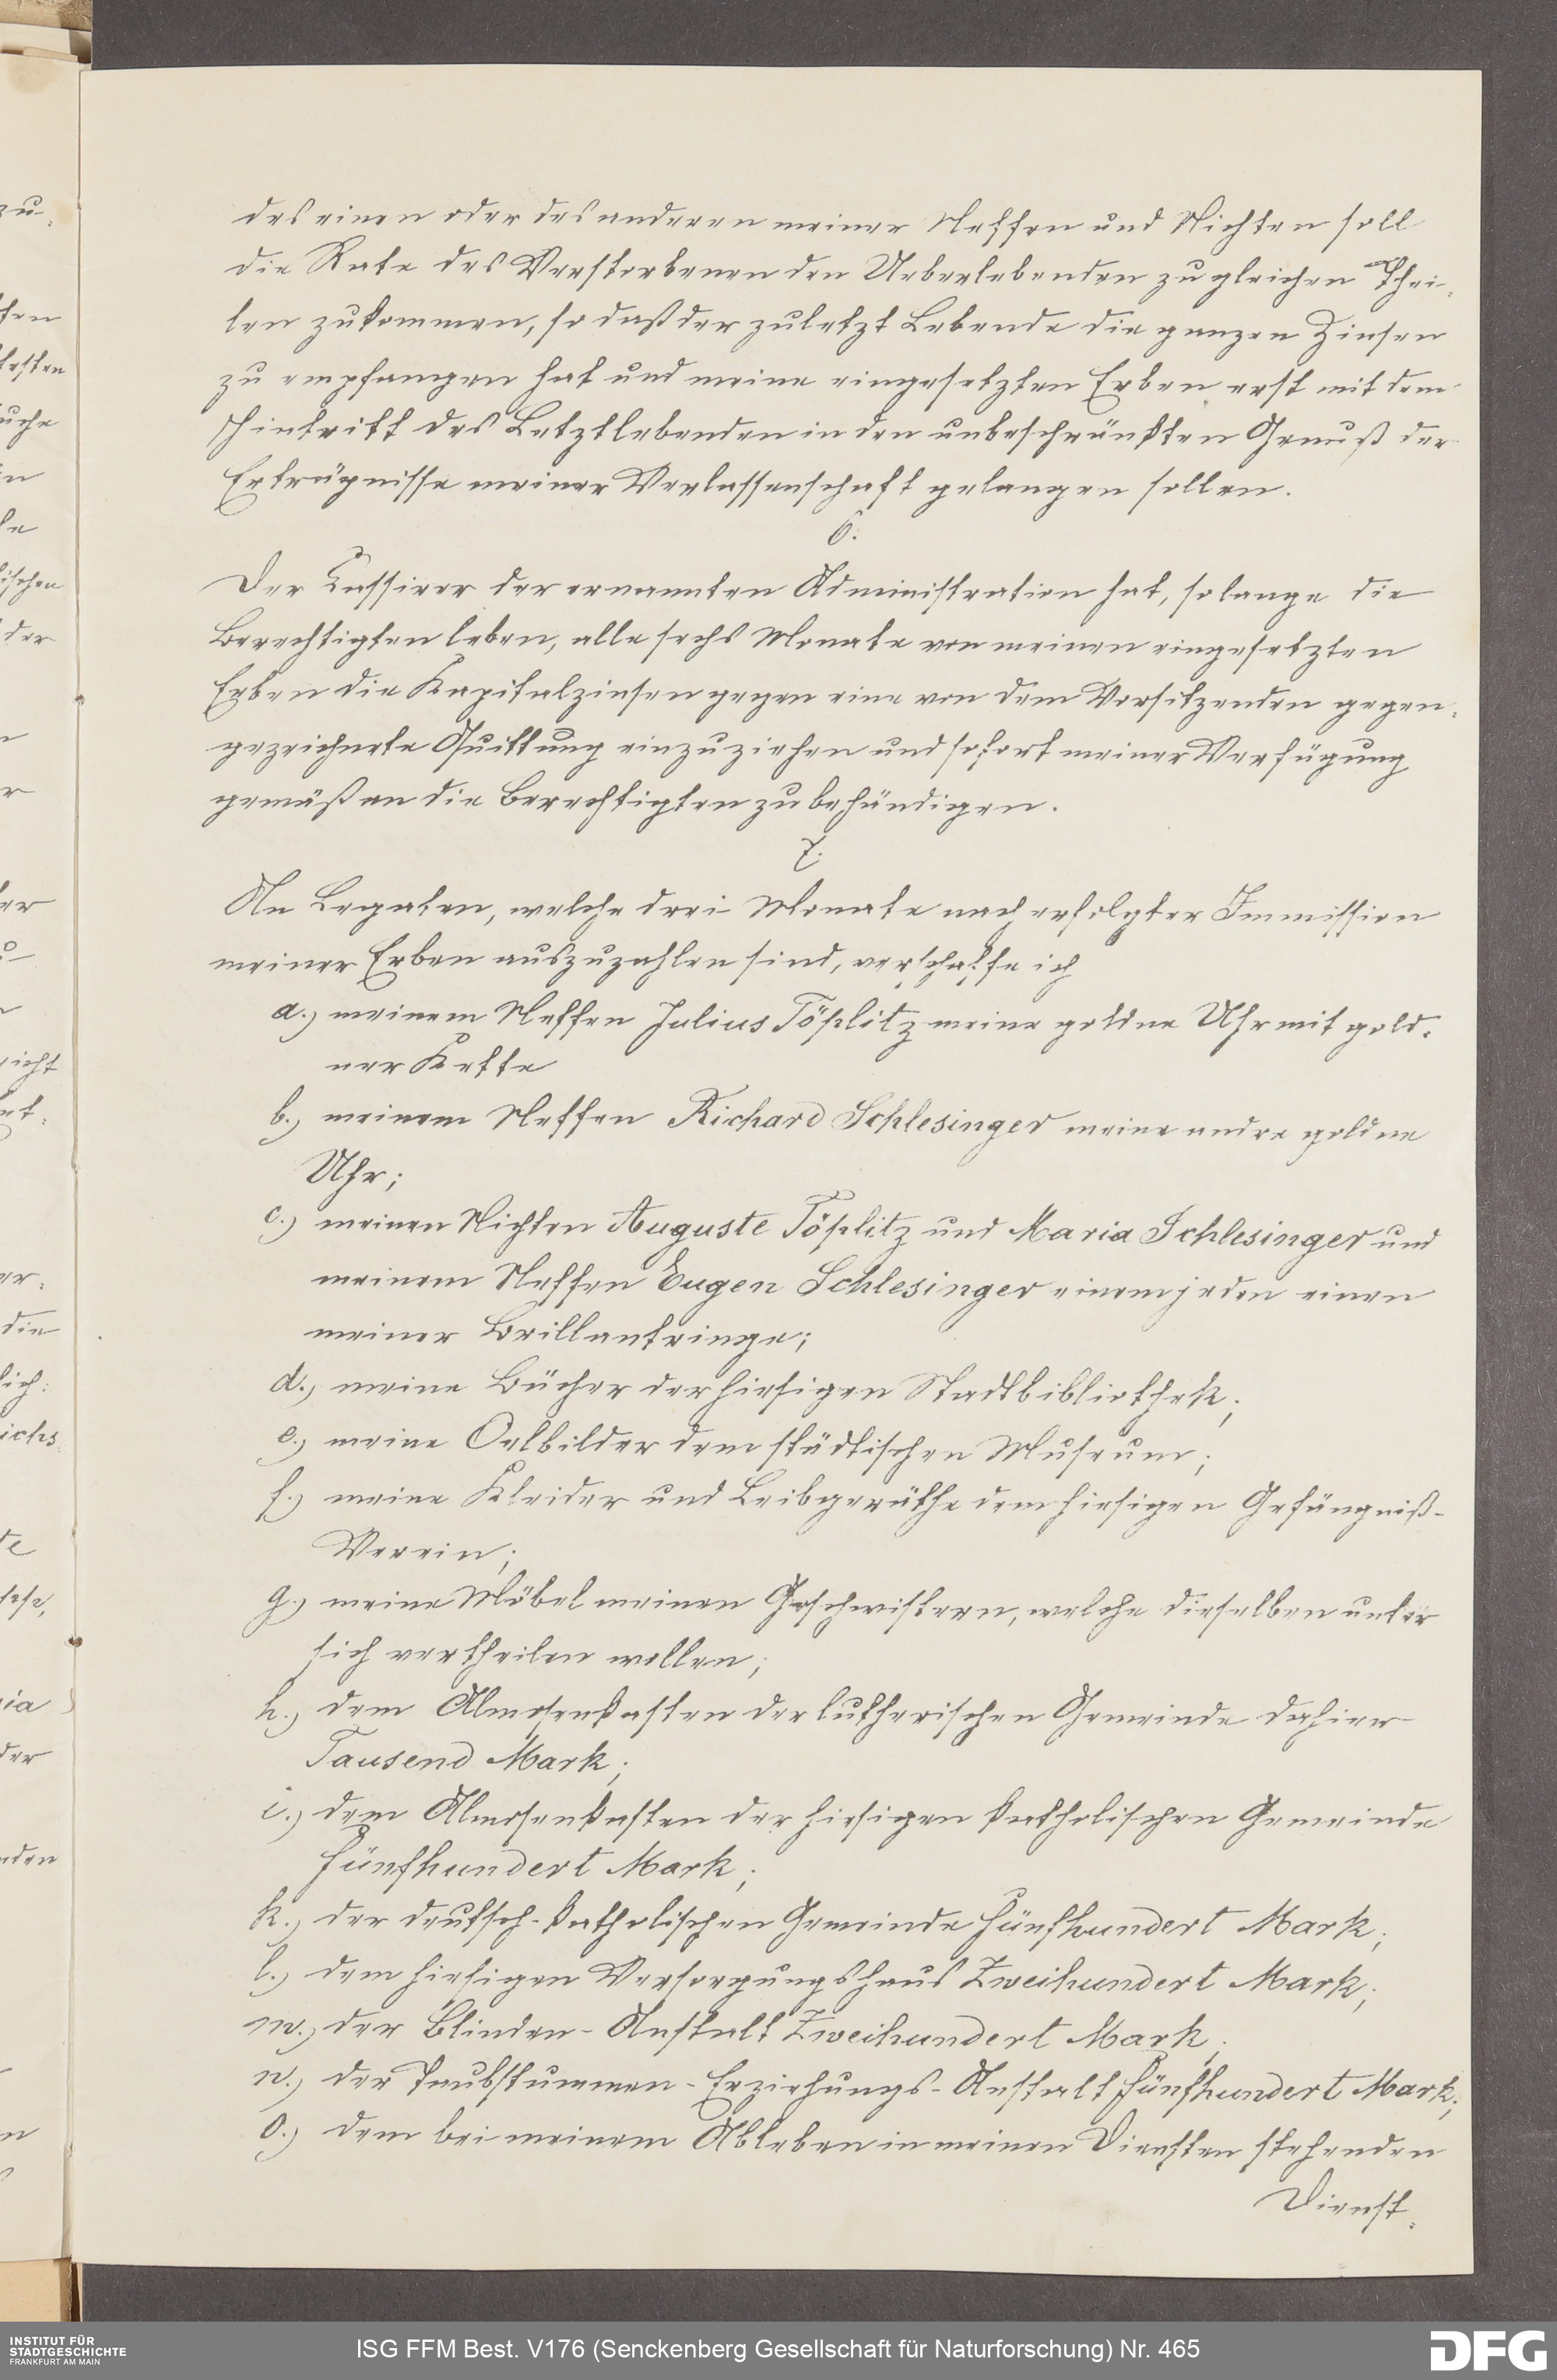 des einen oder des anderen meiner Neffen und Nichten soll
die Rate des Verstorbenen den Ueberlebenden zu gleichen Thei-
len zukommen, so daß der zuletzt Lebende die ganzen Zinsen
zu empfangen hat und meine eingesetzten Erben erst mit dem
Hintritt des Letztlebenden in den unbeschränkten Genuß der
Erträgnisse meiner Verlassenschaft gelangen sollen.
6.
Der Cassirer der ernannten Administration hat, solange die
Berechtigten leben, alle sechs Monate von meinen eingesetzten
Erben die Kapitalzinsen gegen eine von dem Vorsitzenden gegen-
gezeichnete Quittung einzuziehen und sofort meiner Verfügung
gemäß an die Berechtigten zu behändigen.
7.
An Legaten, welche drei Monate nach erfolgter Immission
meiner Erben auszuzahlen sind, verschaffe ich
a.) meinem Neffen Julius Töplitz meine goldne Uhr mit gold-
ner Kette
b.) meinem Neffen Richard Schlesinger meine andre goldne
Uhr;
c.) meinen Nichten Auguste Töplitz und Maria Schlesinger und
meinem Neffen Eugen Schlesinger einem jeden einen
meiner Brillantringe;
d.) meine Bücher der hiesigen Stadtbibliothek;
e.) meine Oelbilder dem städtischen Museum;
f.) meine Kleider und Leibgeräthe dem hiesigen Gefängniß-
Verein;
g.) meine Möbel meinen Geschwistern, welche dieselben unter
sich vertheilen wollen;
h.) dem Almosenkasten der lutherischen Gemeinde dahier
Tausend Mark;
i.) dem Almosenkasten der hiesigen katholischen Gemeinde
Fünfhundert Mark;
k.) der deutsch-katholischen Gemeinde Fünfhundert Mark;
l.) dem hiesigen Versorgungshaus Zweihundert Mark;
m.) der Blinden-Anstalt Zweihundert Mark;
n.) der Taubstummen-Erziehungs-Anstalt Fünfhundert Mark;
o.) dem bei meinem Ableben in meinen Diensten stehenden
Dienst-
INSTITUT FÜR
STADTGESCHICHTE
FRANKFURT AM MAIN
ISG FFM Best. V176 (Senckenberg Gesellschaft für Naturforschung) Nr. 465
DFG